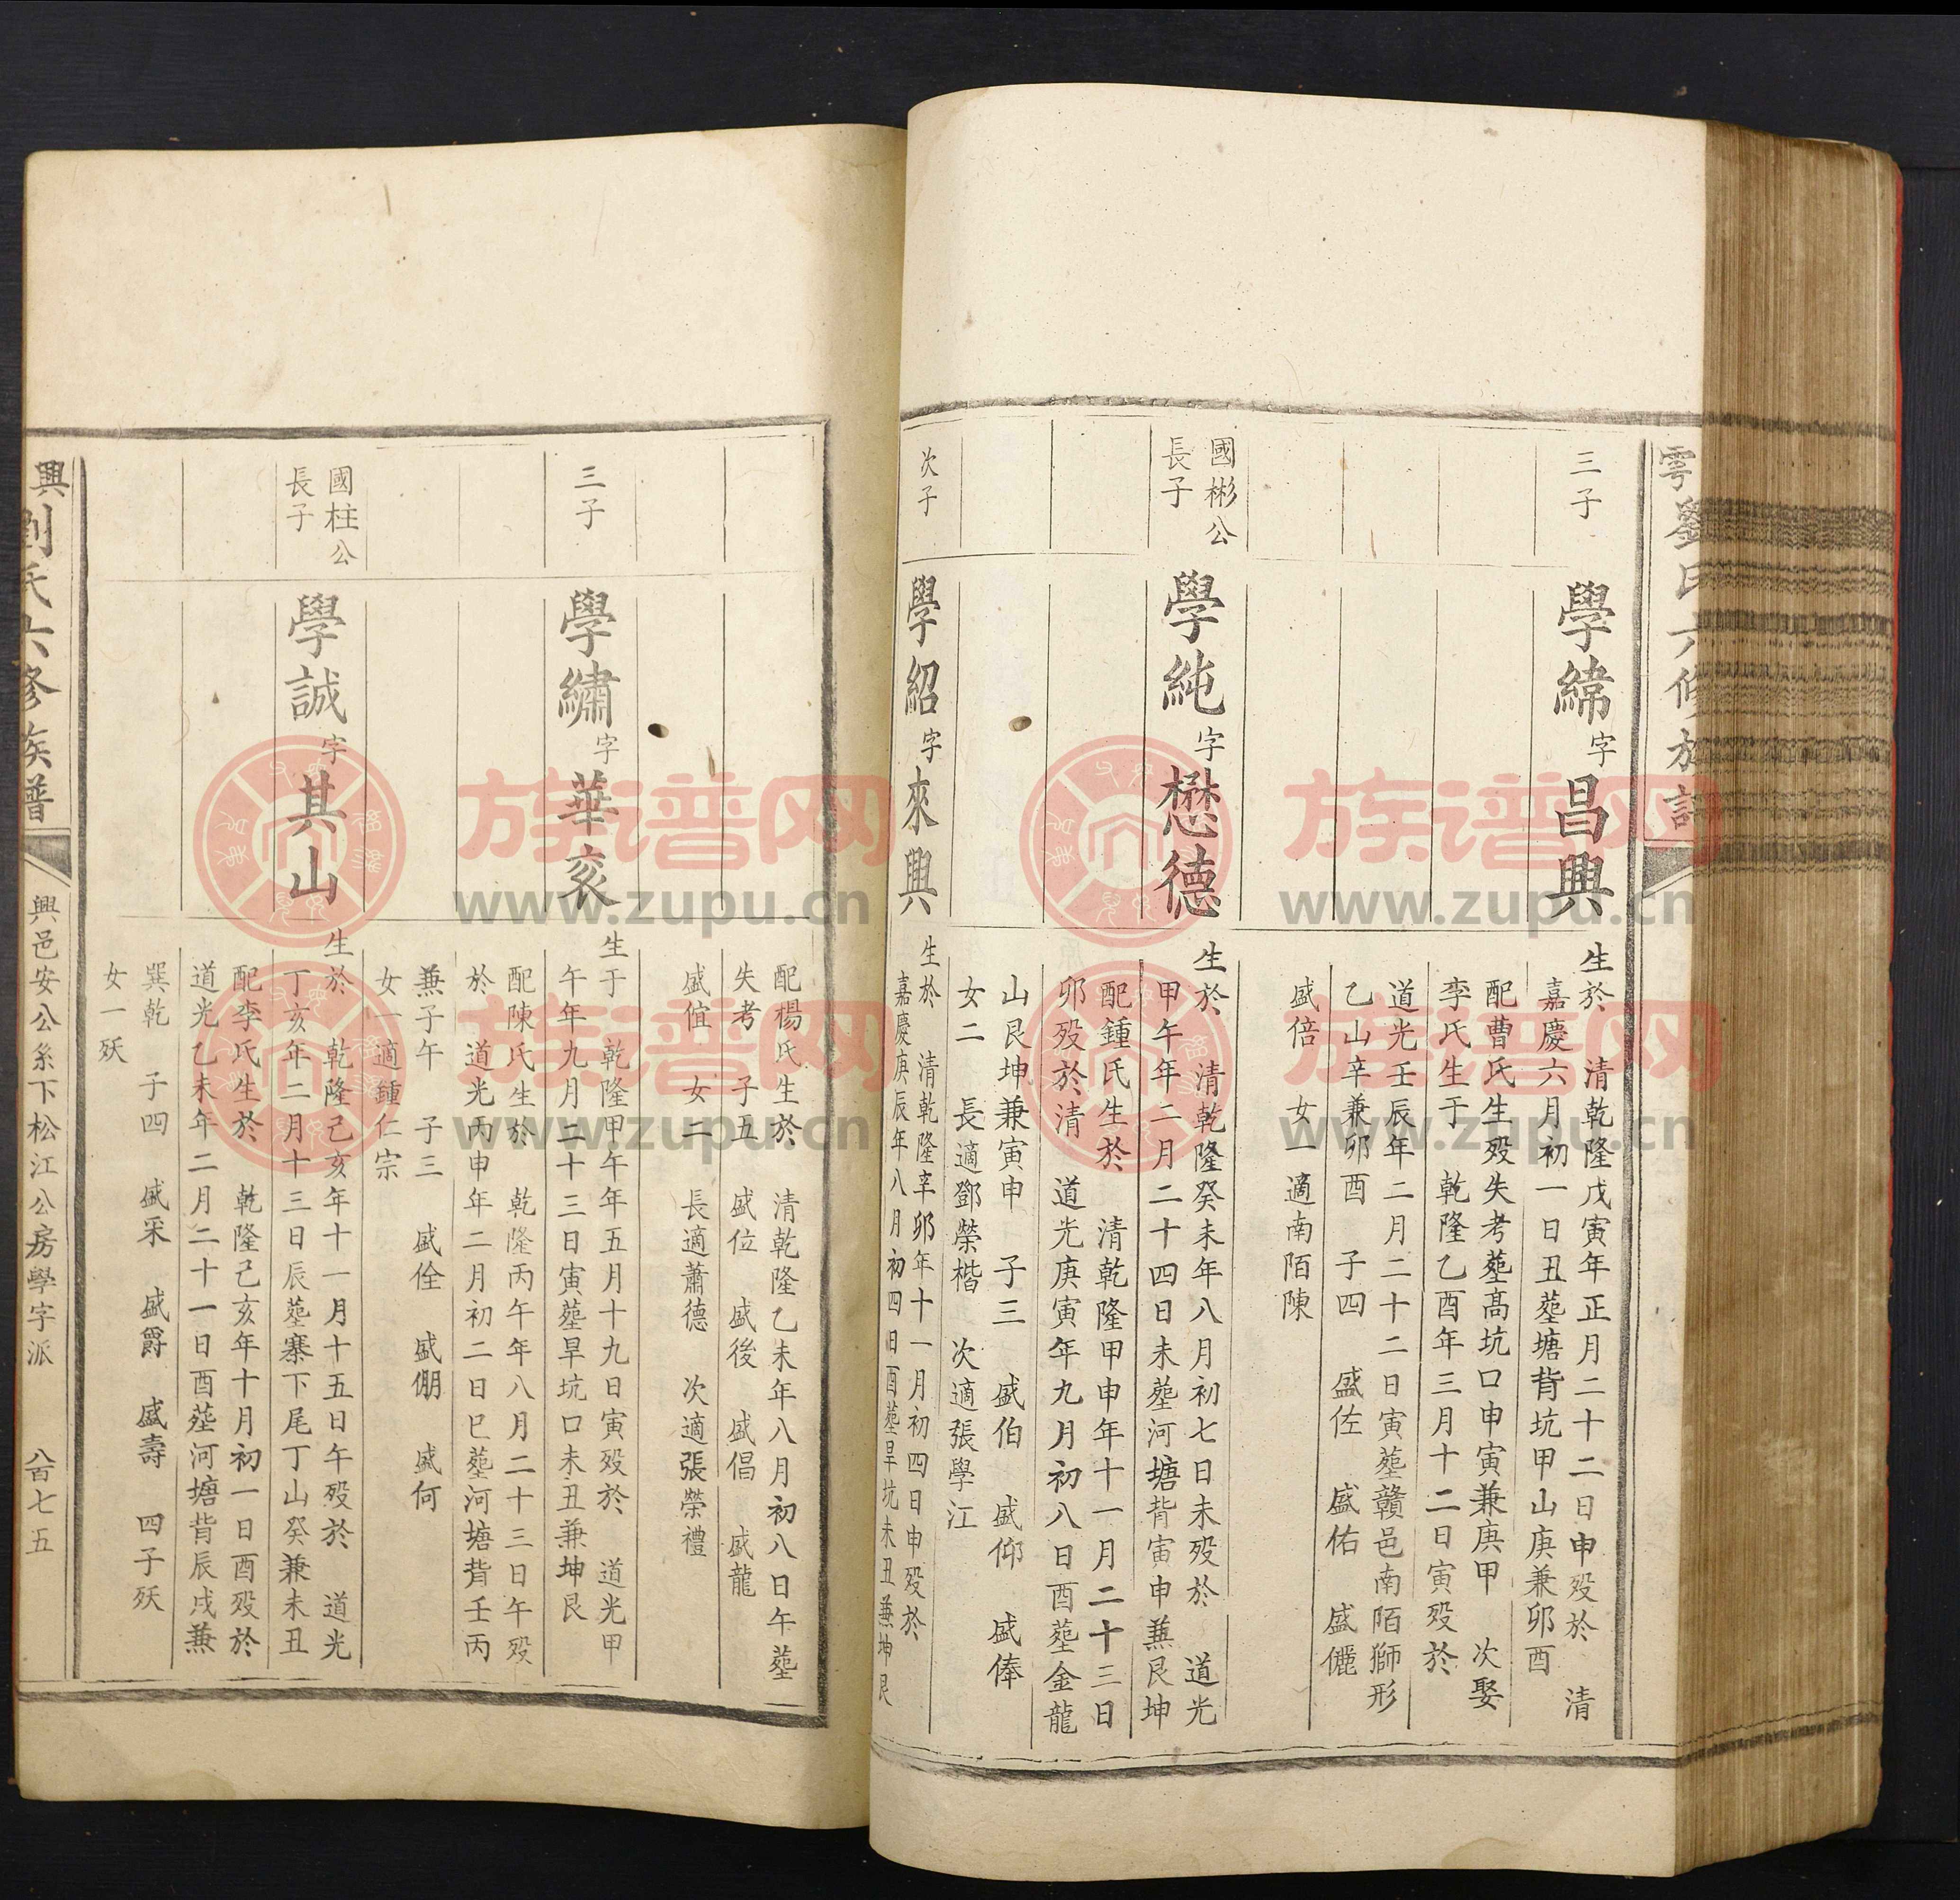 雩劉氏六修族譜
三子
學緯字昌興
生於 清乾隆戊寅年正月二十二日申殁於 清
嘉慶六月初一日丑塟塘背坑甲山庚兼卯酉
配曹氏生殁失考塟高坑口申寅兼庚甲 次娶
李氏生于 乾隆乙酉年三月十二日寅殁於
道光壬辰年二月二十二日寅塟贛邑南陌獅形
乙山辛兼卯酉 子四 盛佐 盛佑 盛儷
盛倍 女一適南陌陳
國彬公
長子
學純字懋德
生於 清乾隆癸未年八月初七日未殁於 道光
甲午年二月二十四日未塟河塘背寅申兼艮坤
配鍾氏生於 清乾隆甲申年十一月二十三日
卯殁於清 道光庚寅年九月初八日酉塟金龍
山艮坤兼寅申 子三 盛伯 盛仰 盛俸
女二 長適鄧榮楷 次適張學江
次子
學紹字來興
生於 清乾隆辛卯年十一月初四日申殁於
嘉慶庚辰年八月初四日酉塟旱坑未丑兼坤艮
配楊氏生於 清乾隆乙未年八月初八日午塟
失考 子五 盛位 盛後 盛倡 盛龍
盛值 女二 長適蕭德 次適張榮禮
三子
學繡字華袞
生于 乾隆甲午年五月十九日寅殁於 道光甲
午年九月二十三日寅塟旱坑口未丑兼坤艮
配陳氏生於 乾隆丙午年八月二十三日午殁
於 道光丙申年二月初二日巳塟河塘背壬丙
兼子午 子三 盛佺 盛倗 盛何
女一適鍾仁宗
國柱公
長子
學誠字其山
生於 乾隆己亥年十一月十五日午殁於 道光
丁亥年二月十三日辰塟寨下尾丁山癸兼未丑
配李氏生於 乾隆己亥年十月初一日酉殁於
道光乙未年二月二十一日酉塟河塘背辰戌兼
巽乾 子四 盛采 盛爵 盛壽 四子殀
女一殀
興劉氏六修族譜
興邑安公系下松江公房學字派 八百七五
族谱网
www.zupu.cn
族谱网
www.zupu.cn
族谱网
www.zupu.cn
族谱网
www.zupu.cn